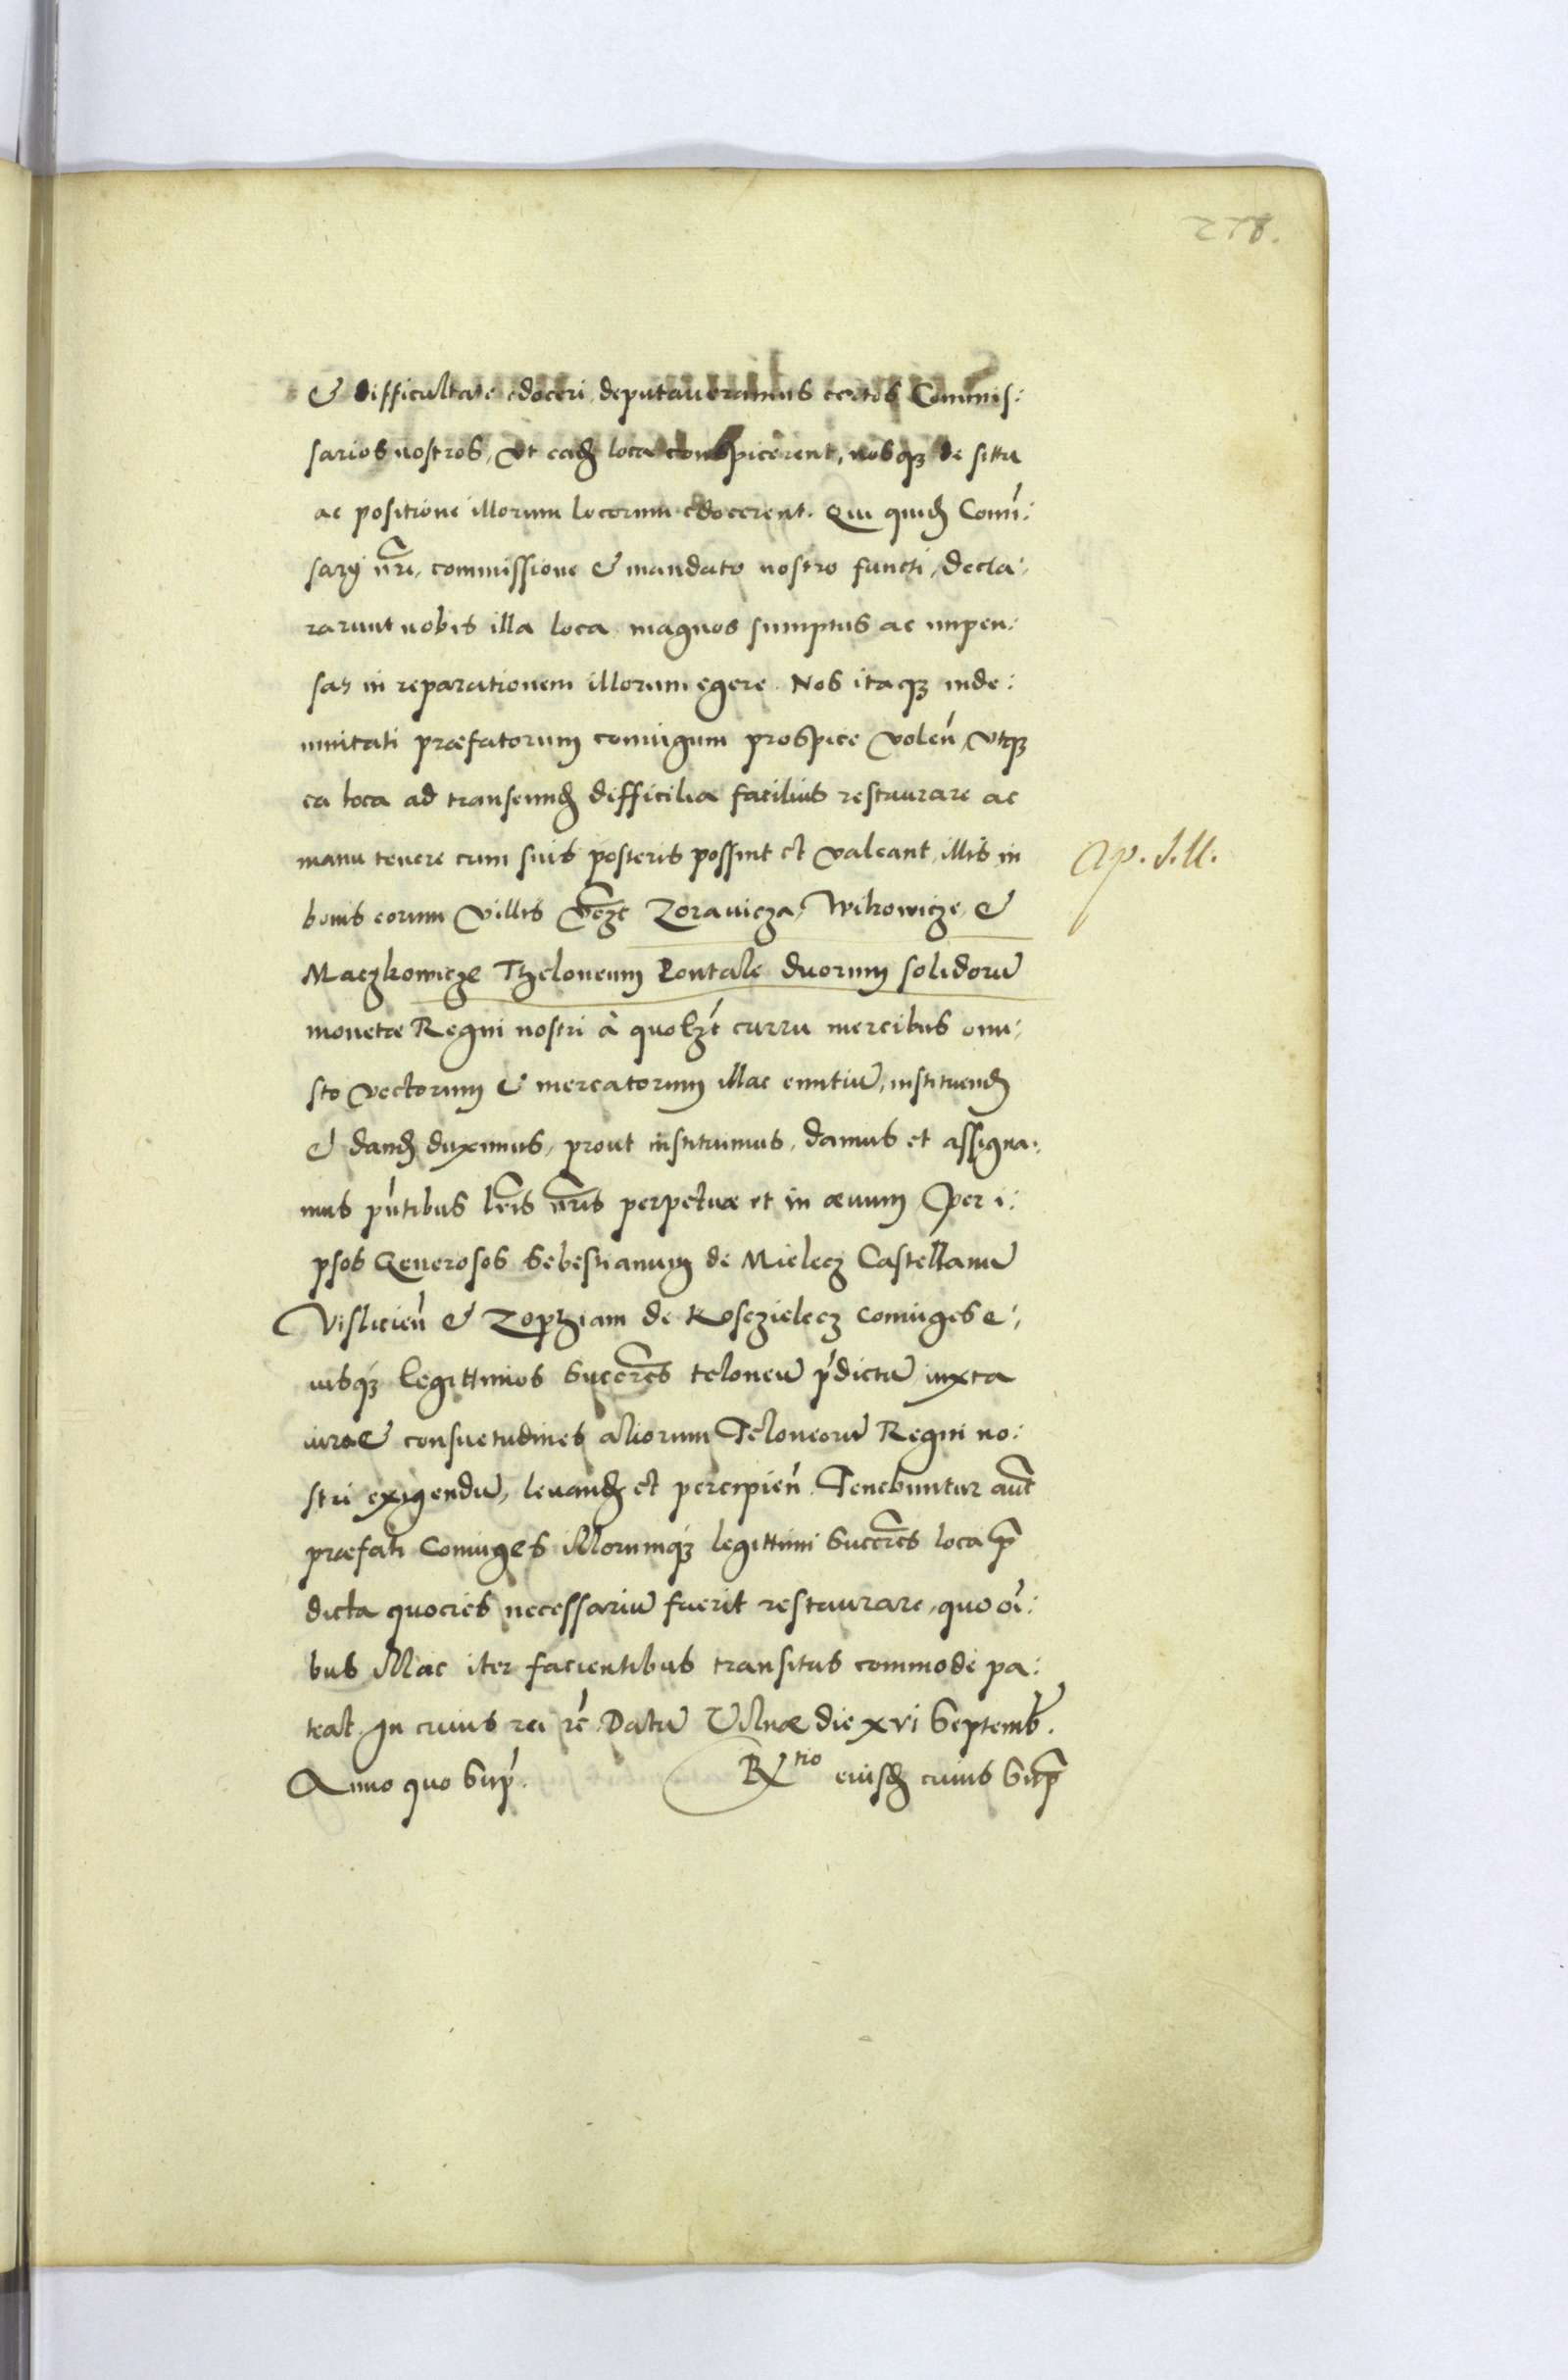 228.
& difficultate edoceri, deputaveramus certos Commis:
sarios nostros, Vt eadẽ loca conspicerent, nosqȝ de situ
ac positione illorum locorum edocerent. Qui quidẽ Com̃:
sarij nr̃i, commissione & mandato nostro functi, decla:
rarunt nobis illa loca magnos sumptus ac impen:
sas in reparationem illorum egere. Nos itaqȝ inde:
mnitati præfatorum coniugum prospice Volen̄, Vtqȝ
ea loca ad transeundẽ difficilia facilius restaurare ac
manu tenere cum suis posteris possint et Valeant, illis in
bonis eorum Villis Zoravicza, Wikowicze, &
Maczkowicze Thzeloneum Pontale duorum solidorũ
monetæ Regni nostri à quolȝt curru mercibus onu:
sto Vectorum & mercatorum illac euntiũ, instituendẽ
& dandẽ duximus, prout instituimus, damus et assigna:
mus pñtibus lr̃is nr̃is perpetuæ et in ævum Per i:
psos Generosos Sebestianum de Mielecz Castellanũ
Visliciẽn & Zophiam de Kosczielecz Coniuges e:
iusqȝ legittimos Succr̃es teloneũ p̃dictũ iuxta
iura & consuetudines aliorum Teloneorũ Regni no:
stri exigendũ, levandẽ et percipien̄. Tenebuntur aũt
præfati Coniuges illorumqȝ legittimi Succr̃es loca p̃
dicta quocies necessariũ fuerit restaurare, quo oĩ:
bus illac iter facientibus transitus commode pa:
teat. In cuius rei rẽ. Datũ Vilnæ die xvi Septemb̃.
Anno quo Sup̃. Rtio eiusdẽ cuius Sup̃
Ap. J. II.